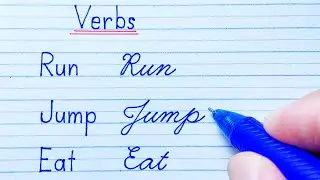 Verbs
Run Run
Jump Jump
Eat Eat